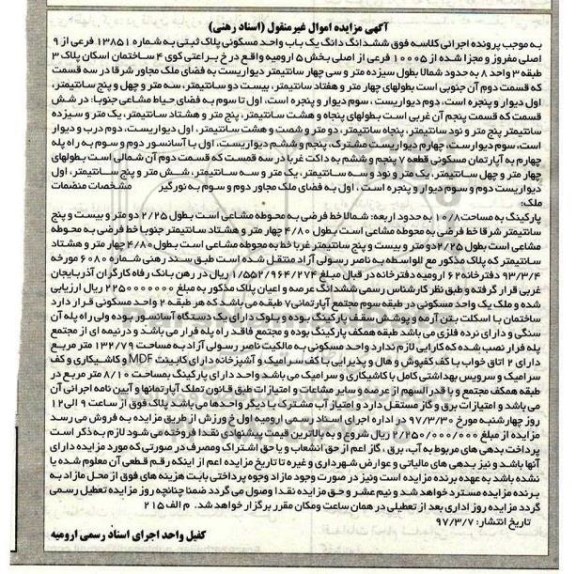 آگهی مزایده اموال غیرمنقول (اسناد رهنی)
به موجب پرونده اجرائی کلاسه فوق ششدانگ دانگ یک باب واحد مسکونی پلاک ثبتی به شماره ۱۳۸۵۱ فرعی از ۹
اصلی مفروز و مجزا شده از ۱۰۰۰۵ فرعی از اصلی بخش ۵ ارومیه واقع در خ براعتی کوی ۴ ساختمان اسکان پلاک ۳
طبقه ۳ واحد ۸ به حدود شمالا بطول سیزده متر و سی چهار سانتیمتر دیواریست به فضای ملک مجاور شرقا در سه قسمت
که قسمت دوم آن جنوبی است بطولهای چهار متر و هفتاد سانتیمتر، بیست دو سانتیمتر، سه متر و چهل و پنج سانتیمتر،
اول دیوار و پنجره است، دوم دیواریست، سوم دیوار و پنجره است، اول تا سوم به فضای حیاط مشاعی جنوبا: در شش
قسمت که قسمت پنجم آن غربی است بطولهای پنجاه و هشت سانتیمتر، پنج متر و هشتاد سانتیمتر، یک متر و سیزده
سانتیمتر پنج متر و نود سانتیمتر، پنجاه سانتیمتر، دو متر و شصت و هشت سانتیمتر، اول دیواریست، دوم درب و دیوار
است، سوم دیواریست، چهارم دیواریست مشترک، پنجم و ششم دیواریست، اول با آسانسور دوم و سوم به راه پله
چهارم به آپارتمان مسکونی قطعه ۷ پنجم و ششم به داکت غربا در سه قسمت که قسمت دوم آن شمالی است بطولهای
چهار متر و چهل سانتیمتر، یک متر و نود و سه سانتیمتر، یک متر و سه سانتیمتر، شش متر و پنج سانتیمتر، اول
دیواریست دوم و سوم دیوار و پنجره است ، اول به فضای ملک مجاور دوم و سوم به نورگیر مشخصات منضمات
ملک:
پارکینگ به مساحت ۱۰/۸ به حدود اربعه: شمالا خط فرضی به محوطه مشاعی است بطول ۲/۲۵ دو متر و بیست و پنج
سانتیمتر شرقا خط فرضی به محوطه مشاعی است بطول ۴/۸۰ چهار متر و هشتاد سانتیمتر جنوبا خط فرضی به محوطه
مشاعی است بطول ۲/۲۵ دو متر و بیست و پنج سانتیمتر غربا خط به محوطه مشاعی است بطول ۴/۸۰ چهار متر و هشتاد
سانتیمتر که پلاک مذکور مع الواسطه به ناصر رسولی آزاد منتقل شده است طبق سند رهنی شماره ۶۰۸۰ مورخه
۹۳/۳/۴ دفترخانه ۶۲ ارومیه دفترخانه در قبال مبلغ ۱/۵۵۲/۹۶۴/۲۷۴ ریال در رهن بانک رفاه کارگران آذربایجان
غربی قرار گرفته و طبق نظر کارشناس رسمی ششدانگ عرصه و اعیان پلاک مذکور به مبلغ ۲۲۵۰۰۰۰۰۰۰ ریال ارزیابی
شده و ملک یک واحد مسکونی در طبقه سوم مجتمع آپارتمانی ۷ طبقه می باشد که هر طبقه ۲ واحد مسکونی قرار دارد
ساختمان با اسکلت بتن آرمه و پوشش سقف پارکینگ بوده و بلوک دارای یک دستگاه آسانسور بوده ولی راه پله آن
سنگی و دارای نرده فلزی می باشد طبقه همکف پارکینگ بوده و مجتمع فاقد راه پله فرار می باشد و درنیمه ای از مجتمع
پله فرار نصب شده که کارایی لازم ندارد واحد مسکونی به مالکیت ناصر رسولی آزاد به مساحت ۱۳۲/۷۹ متر مربع
دارای ۲ اتاق خواب با کف کفپوش و هال و پذیرایی با کف سرامیک و آشپزخانه دارای کابینت MDF و کاشیکاری و کف
سرامیک و سرویس بهداشتی کامل با کاشیکاری و سرامیک می باشد واحد دارای پارکینگ بمساحت ۸/۱۰ متر مربع در
طبقه همکف مجتمع و با قدرالسهم از عرصه و سایر مشاعات و امتیازات طبق قانون تملک آپارتمانها و آیین نامه اجرائی آن
می باشد و امتیازات برق و گاز مستقل دارد و امتیاز آب مشترک با دیگر واحدها می باشد پلاک فوق از ساعت ۹ الی ۱۲
روز چهارشنبه مورخ ۹۷/۳/۳۰ در اداره اجرای اسناد رسمی ارومیه اول خ ورزش از طریق مزایده به فروش می رسد
مزایده از مبلغ ۲/۲۵۰/۰۰۰/۰۰۰ ریال شروع و به بالاترین قیمت پیشنهادی نقدا فروخته می شود لازم به ذکر است
پرداخت بدهی های مربوط به آب، برق ، گاز اعم از حق انشعاب و یا حق اشتراک ومصرف در صورتی که مورد مزایده دارای
آنها باشد و نیز بدهی های مالیاتی و عوارض شهرداری و غیره تا تاریخ مزایده اعم از اینکه رقم قطعی آن معلوم شده یا
نشده باشد به عهده برنده مزایده است ونیز در صورت وجود مازاد وجوه پرداختی بابت هزینه های فوق از محل مازاد به
برنده مزایده مسترد خواهد شد و نیم عشر و حق مزایده نقدا وصول می گردد ضمنا چنانچه روز مزایده تعطیل رسمی
گردد مزایده روز اداری بعد از تعطیلی در همان ساعت ومکان مقرر برگزار خواهد شد. م الف ۲۱۵
تاریخ انتشار: ۹۷/۳/۷
کفیل واحد اجرای اسناد رسمی ارومیه